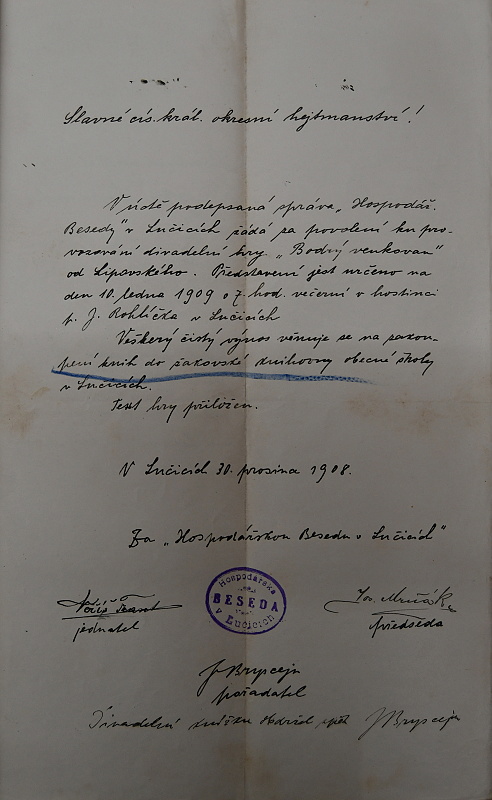 Slavné cís. král. okresní hejtmanství!
V úctě podepsaná správa „Hospodář.
Besedy" v Lučicích žádá za povolení ku pro-
vozování divadelní hry „Bodrý venkovan"
od Lipovského. Představení jest určeno na
den 10. ledna 1909 o 7. hod. večerní v hostinci
p. J. Rohlíčka v Lučicích
Veškerý čistý výnos věnuje se na zakou-
pení knih do žákovské knihovny obecné školy
v Lučicích.
Text hry přiložen.
V Lučicích 30. prosince 1908.
Za „Hospodářskou Besedu v Lučicích"
Hospodářská
BESEDA
v Lučicích
jednatel
Jos.
předseda
pořadatel
Divadelní knížku obdržel zpět